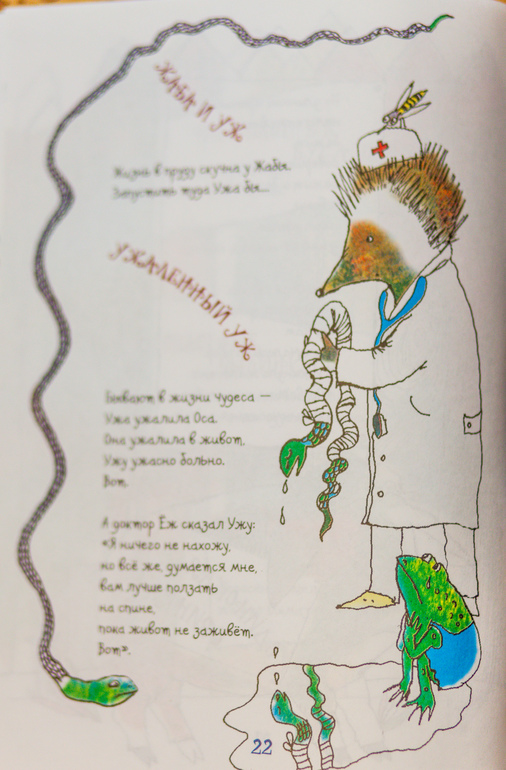 ЖАБА И УЖ
Жизнь в пруду скучна у Жабы.
Запустить туда Ужа бы...
УЖАЛЕННЫЙ УЖ
Бывают в жизни чудеса —
Ужа ужалила Оса.
Она ужалила в живот.
Ужу ужасно больно.
Вот.
А доктор Ёж сказал Ужу:
«Я ничего не нахожу,
но всё же, думается мне,
вам лучше ползать
на спине,
пока живот не заживёт.
Вот».
22